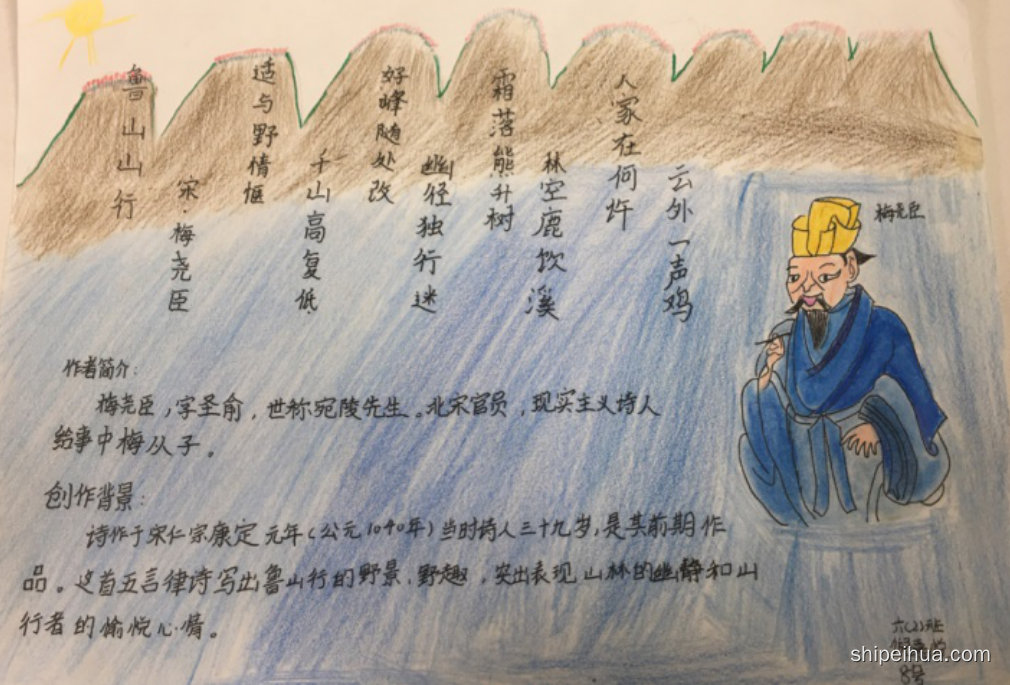 鲁山山行
宋·梅尧臣
适与野情惬
千山高复低
好峰随处改
幽径独行迷
霜落熊升树
林空鹿饮溪
人家在何许
云外一声鸡
梅尧臣
作者简介:
梅尧臣,字圣俞,世称宛陵先生。北宋官员,现实主义诗人
给事中梅从子。
创作背景:
诗作于宋仁宗康定元年(公元1040年)当时诗人三十九岁,是其前期作
品。这首五言律诗写出鲁山行的野景,野趣,突出表现山林的幽静和山
行者的愉悦心情。
六(2)班
8号
shipeihua.com